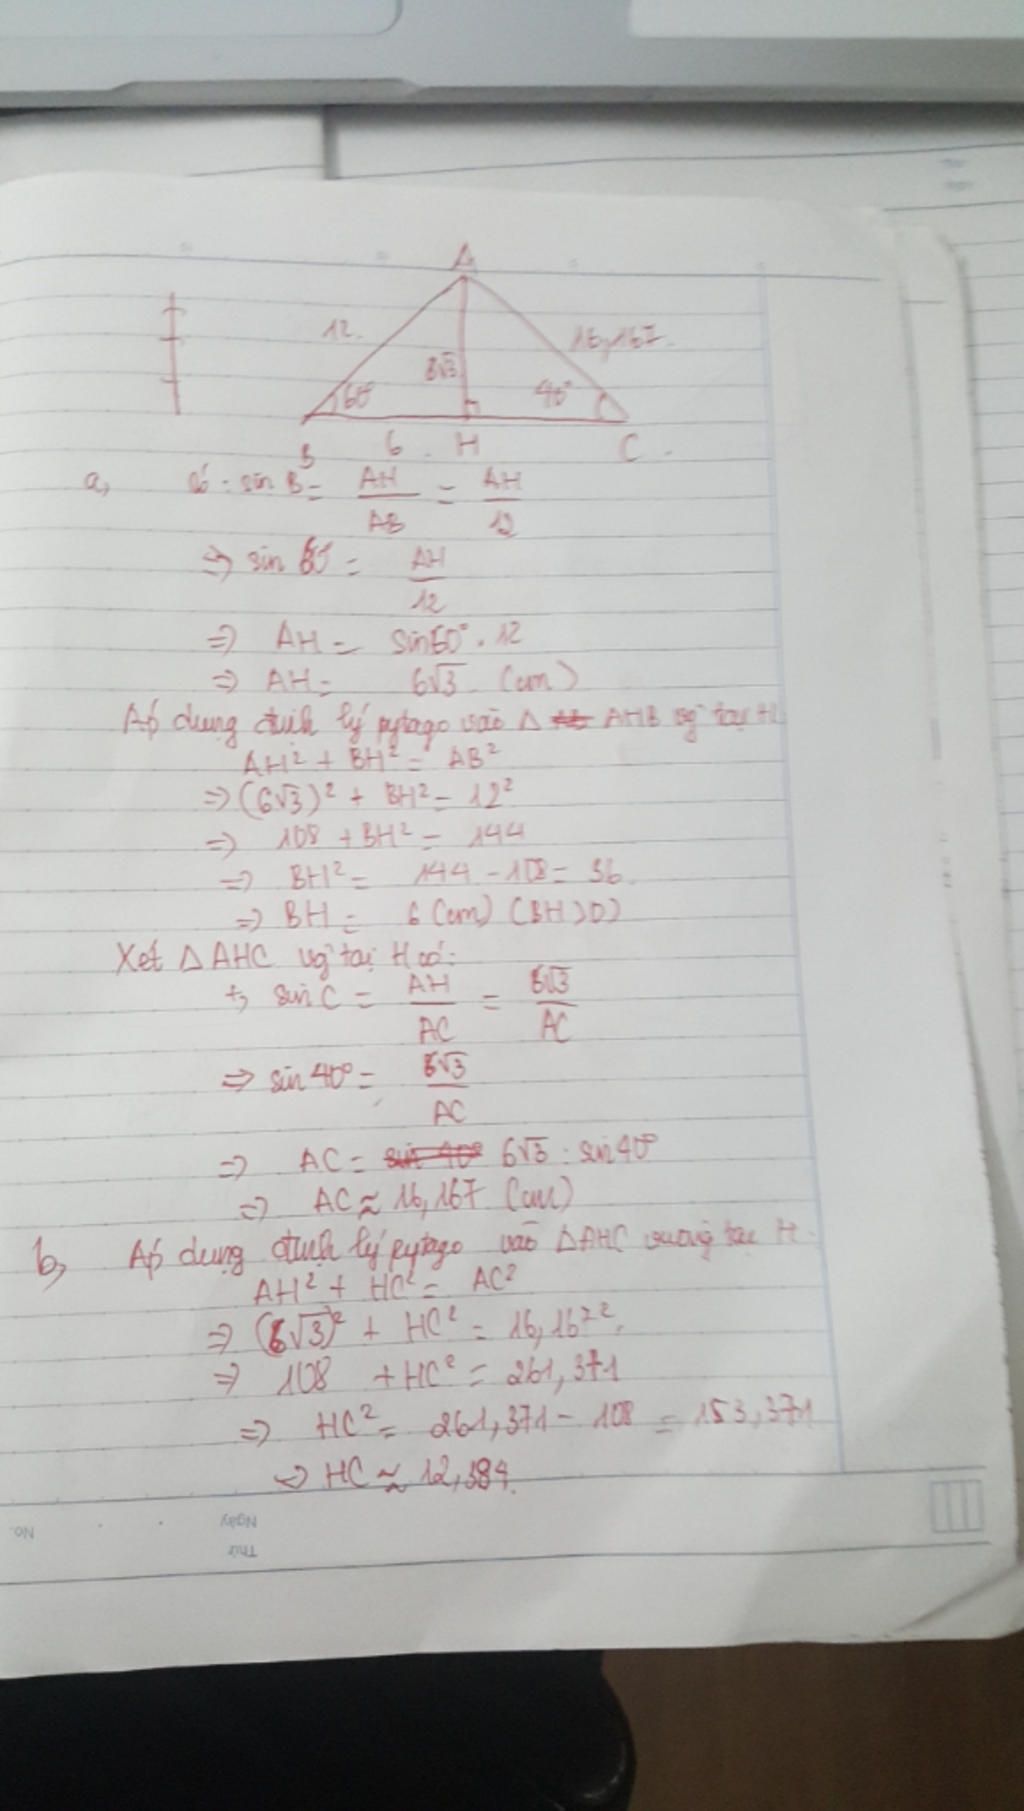 A
12.
16,167.
8√3
60°
40°
B 6. H C.
a, có: sin B = AH/AB = AH/12
⇒ sin 60 = AH/12
⇒ AH = sin60°.12
⇒ AH = 6√3 (cm)
Áp dụng định lý pytago vào Δ AHB vg tại H
AH² + BH² = AB²
⇒ (6√3)² + BH² = 12²
⇒ 108 + BH² = 144
⇒ BH² = 144 - 108 = 36.
⇒ BH = 6 (cm) (BH>0)
Xét ΔAHC vg tại H có:
+, sin C = AH/AC = 6√3/AC
⇒ sin 40° = 6√3/AC
⇒ AC = 6√3 : sin40°
⇒ AC ≈ 16,167 (cm)
b, Áp dụng định lý pytago vào ΔAHC vuông tại H.
AH² + HC² = AC²
⇒ (6√3)² + HC² = 16,167².
⇒ 108 + HC² = 261,371
⇒ HC² = 261,371 - 108 = 153,371
⇒ HC ≈ 12,384.
No.
Ngày
Thứ